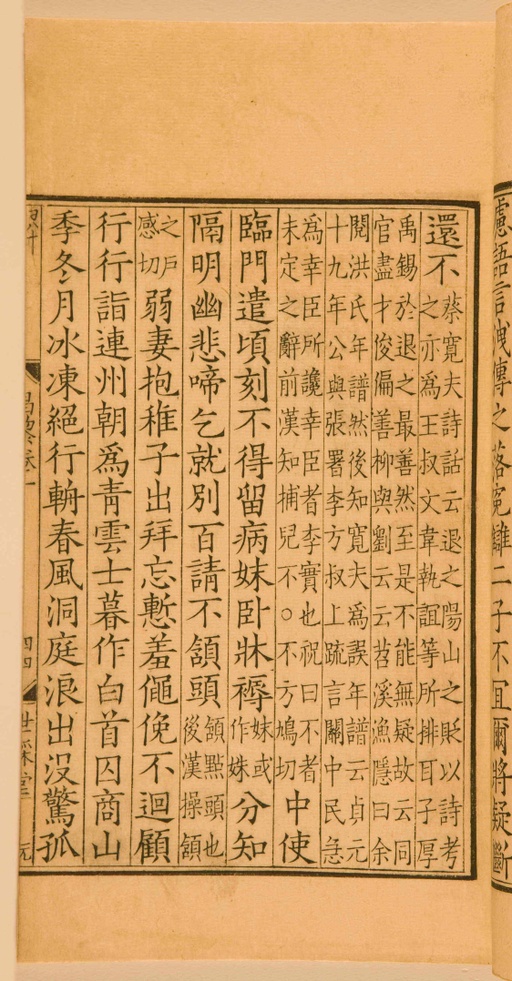 慮語言洩傳之落冤讎二子不宜爾將疑斷
還不
蔡寬夫詩話云退之陽山之貶以詩考
之亦爲王叔文韋執誼等所排耳子厚
禹錫於退之最善然至是不能無疑故云同
官盡才俊偏善柳與劉云云苕溪漁隱曰余
閱洪氏年譜然後知寬夫爲誤年譜云貞元
十九年公與張署李方叔上疏言關中民急
爲幸臣所讒幸臣者李實也祝曰不者
未定之辭前漢知捕兒不○不方鳩切
中使
臨門遣頃刻不得留病妹臥牀褥
妹或
作姝
分知
隔明幽悲啼乞就別百請不頷頭
頷點頭也
後漢操頷
之戶
感切
弱妻抱稚子出拜忘慙羞僶俛不迴顧
行行詣連州朝爲靑雲士暮作白首囚商山
季冬月冰凍絕行輈春風洞庭浪出沒驚孤
昌黎卷一
四四
世綵堂